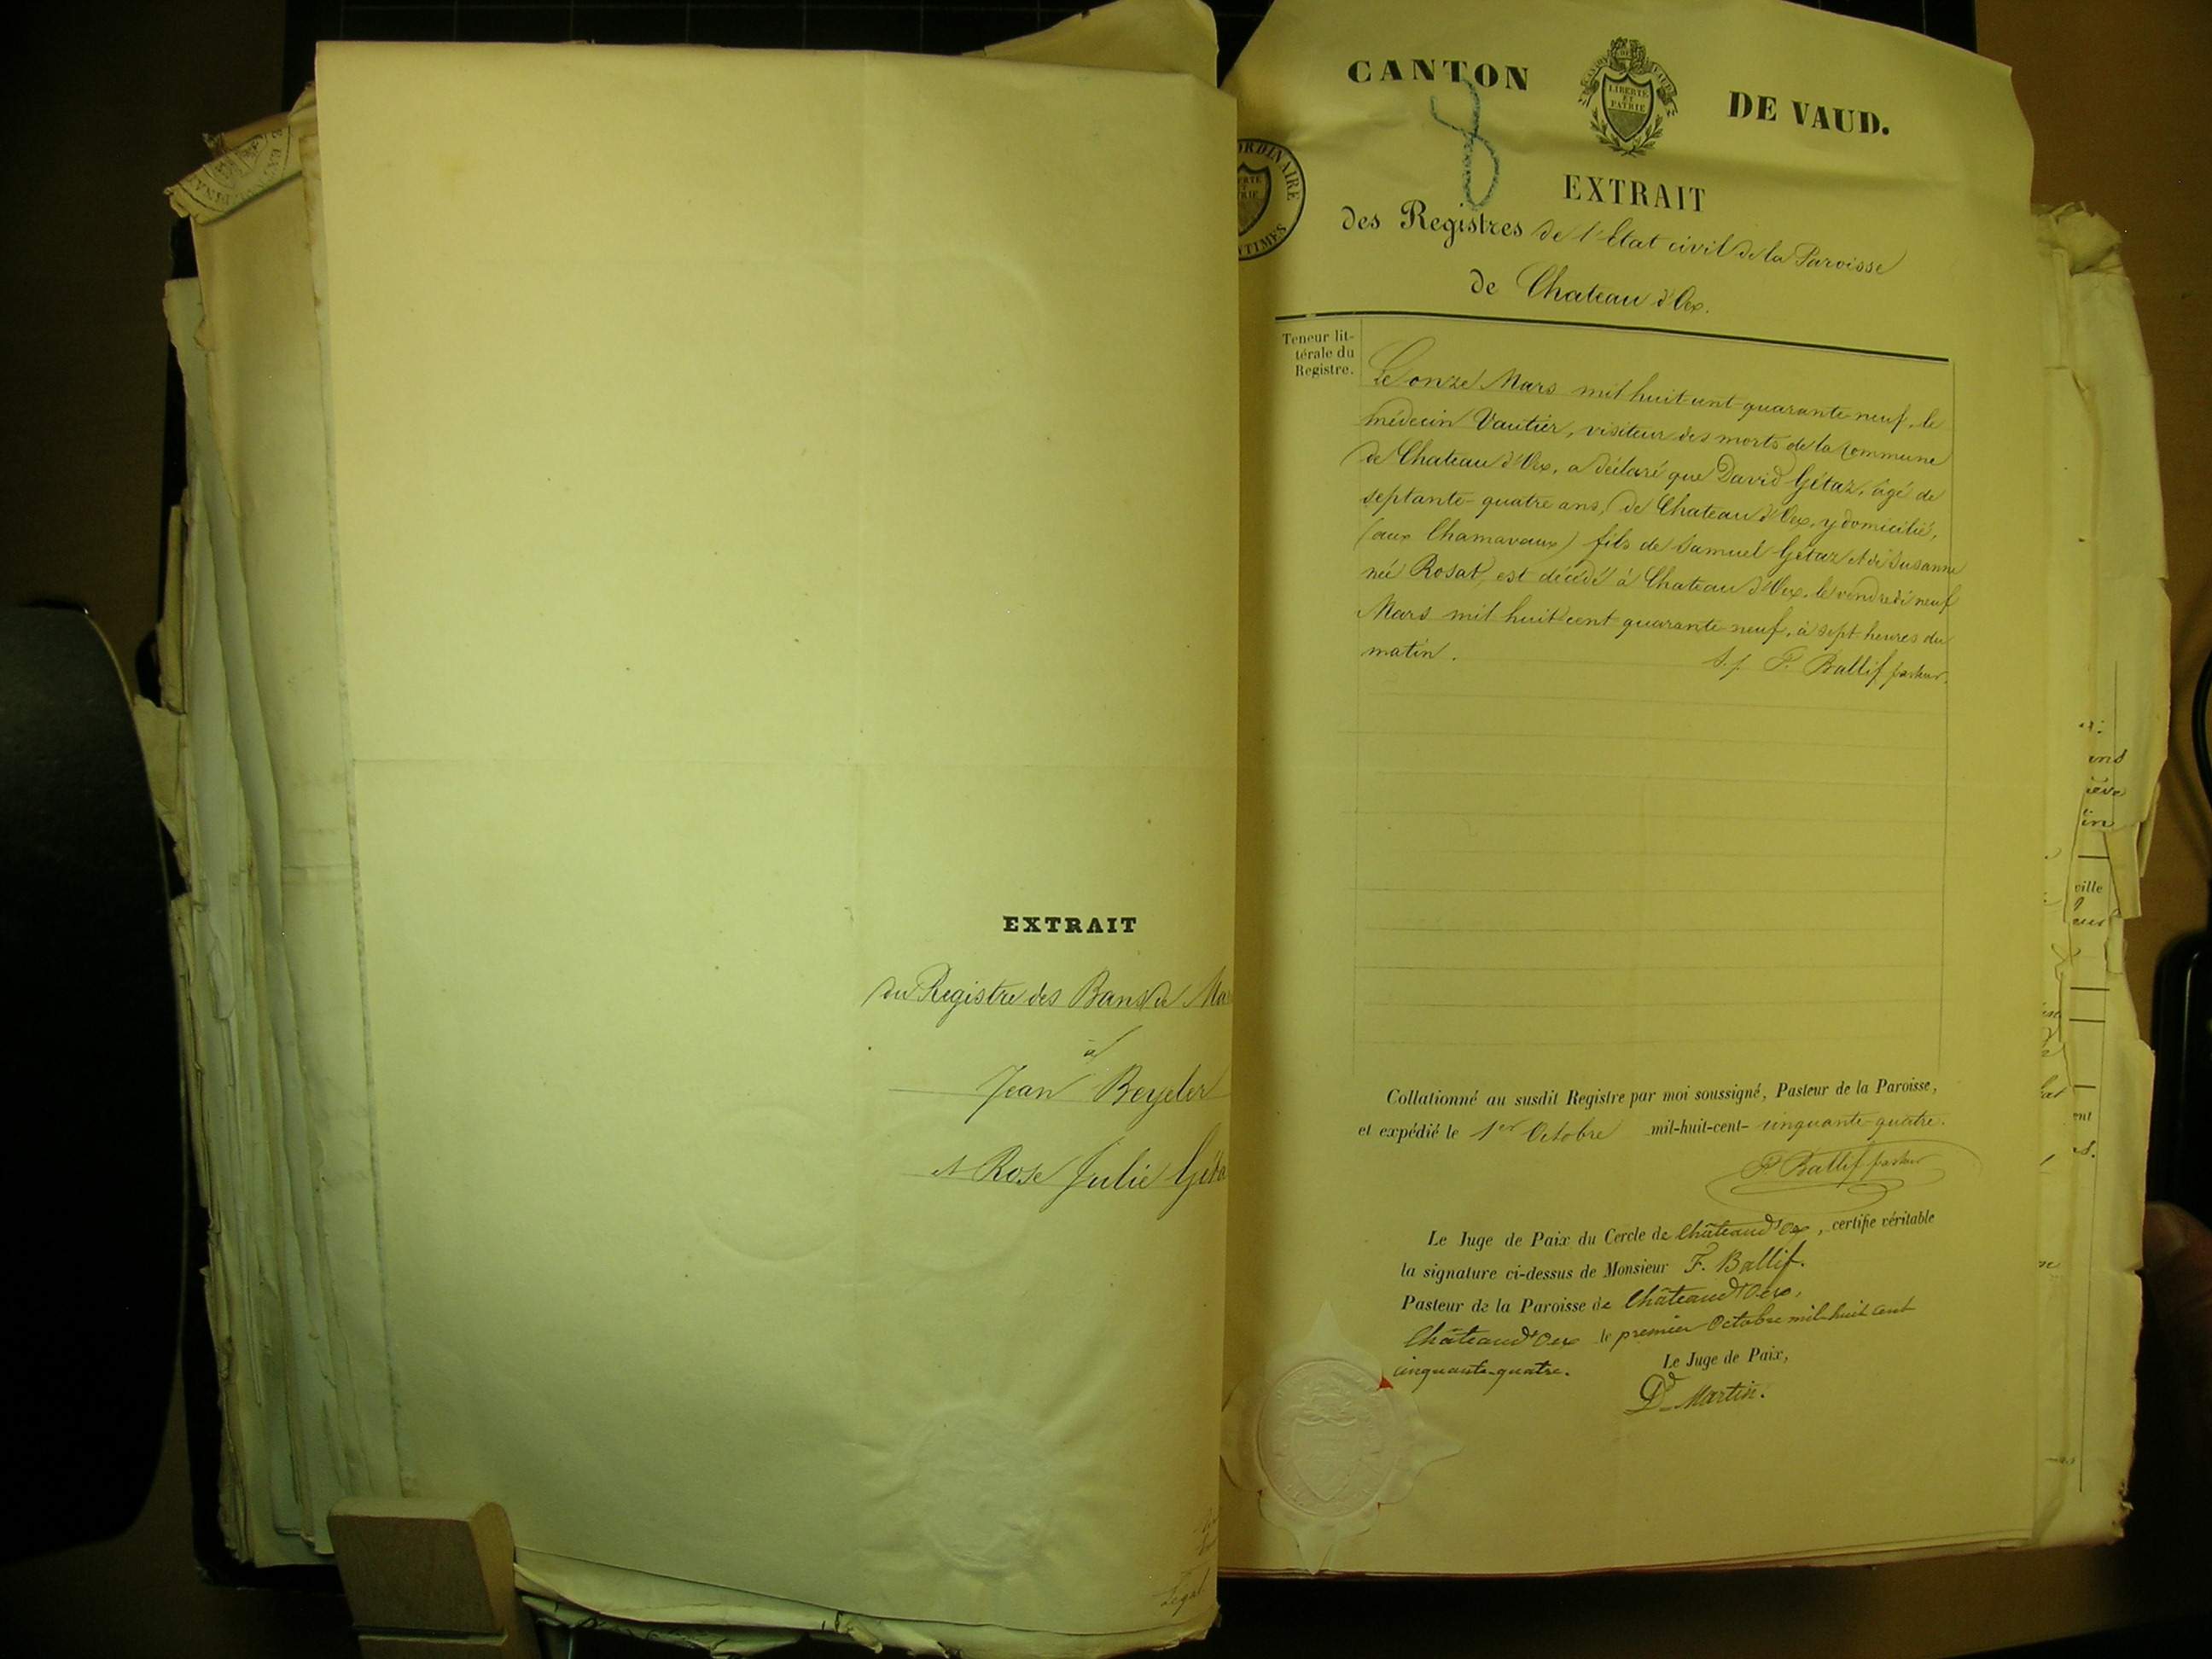 EXTRAIT
du Registre des Bans de Mar
à
Jean Beyeler
et Rose Julie Géta
Légal
CANTON DE VAUD.
LIBERTÉ
ET
PATRIE
8
ORDINAIRE
TIMES
EXTRAIT
des Registres de l'Etat civil de la Paroisse
de Chateau d'Oex.
Teneur lit-
térale du
Registre.
Le onze Mars mil huit-cent-quarante neuf, le
médecin Vautier, visiteur des morts de la Commune
de Chateau d'Oex, a déclaré que David Gétaz, âgé de
septante-quatre ans, de Chateau d'Oex, y domicilié,
(aux Chamavaux) fils de Samuel Gétaz et de Susanne
née Rosat, est décédé à Chateau d'Oex, le vendredi neuf
Mars mil huit cent quarante-neuf, à sept heures du
matin. S.f. F. Ballif pasteur.
Collationné au susdit Registre par moi soussigné, Pasteur de la Paroisse,
et expédié le 1er Octobre mil-huit-cent- cinquante-quatre.
F. Ballif pasteur
Le Juge de Paix du Cercle de Château d'Oex, certifie véritable
la signature ci-dessus de Monsieur F. Ballif.
Pasteur de la Paroisse de Château d'Oex,
Château d'Oex le premier Octobre mil-huit cent
cinquante-quatre.
Le Juge de Paix,
Dd Martin.
ville